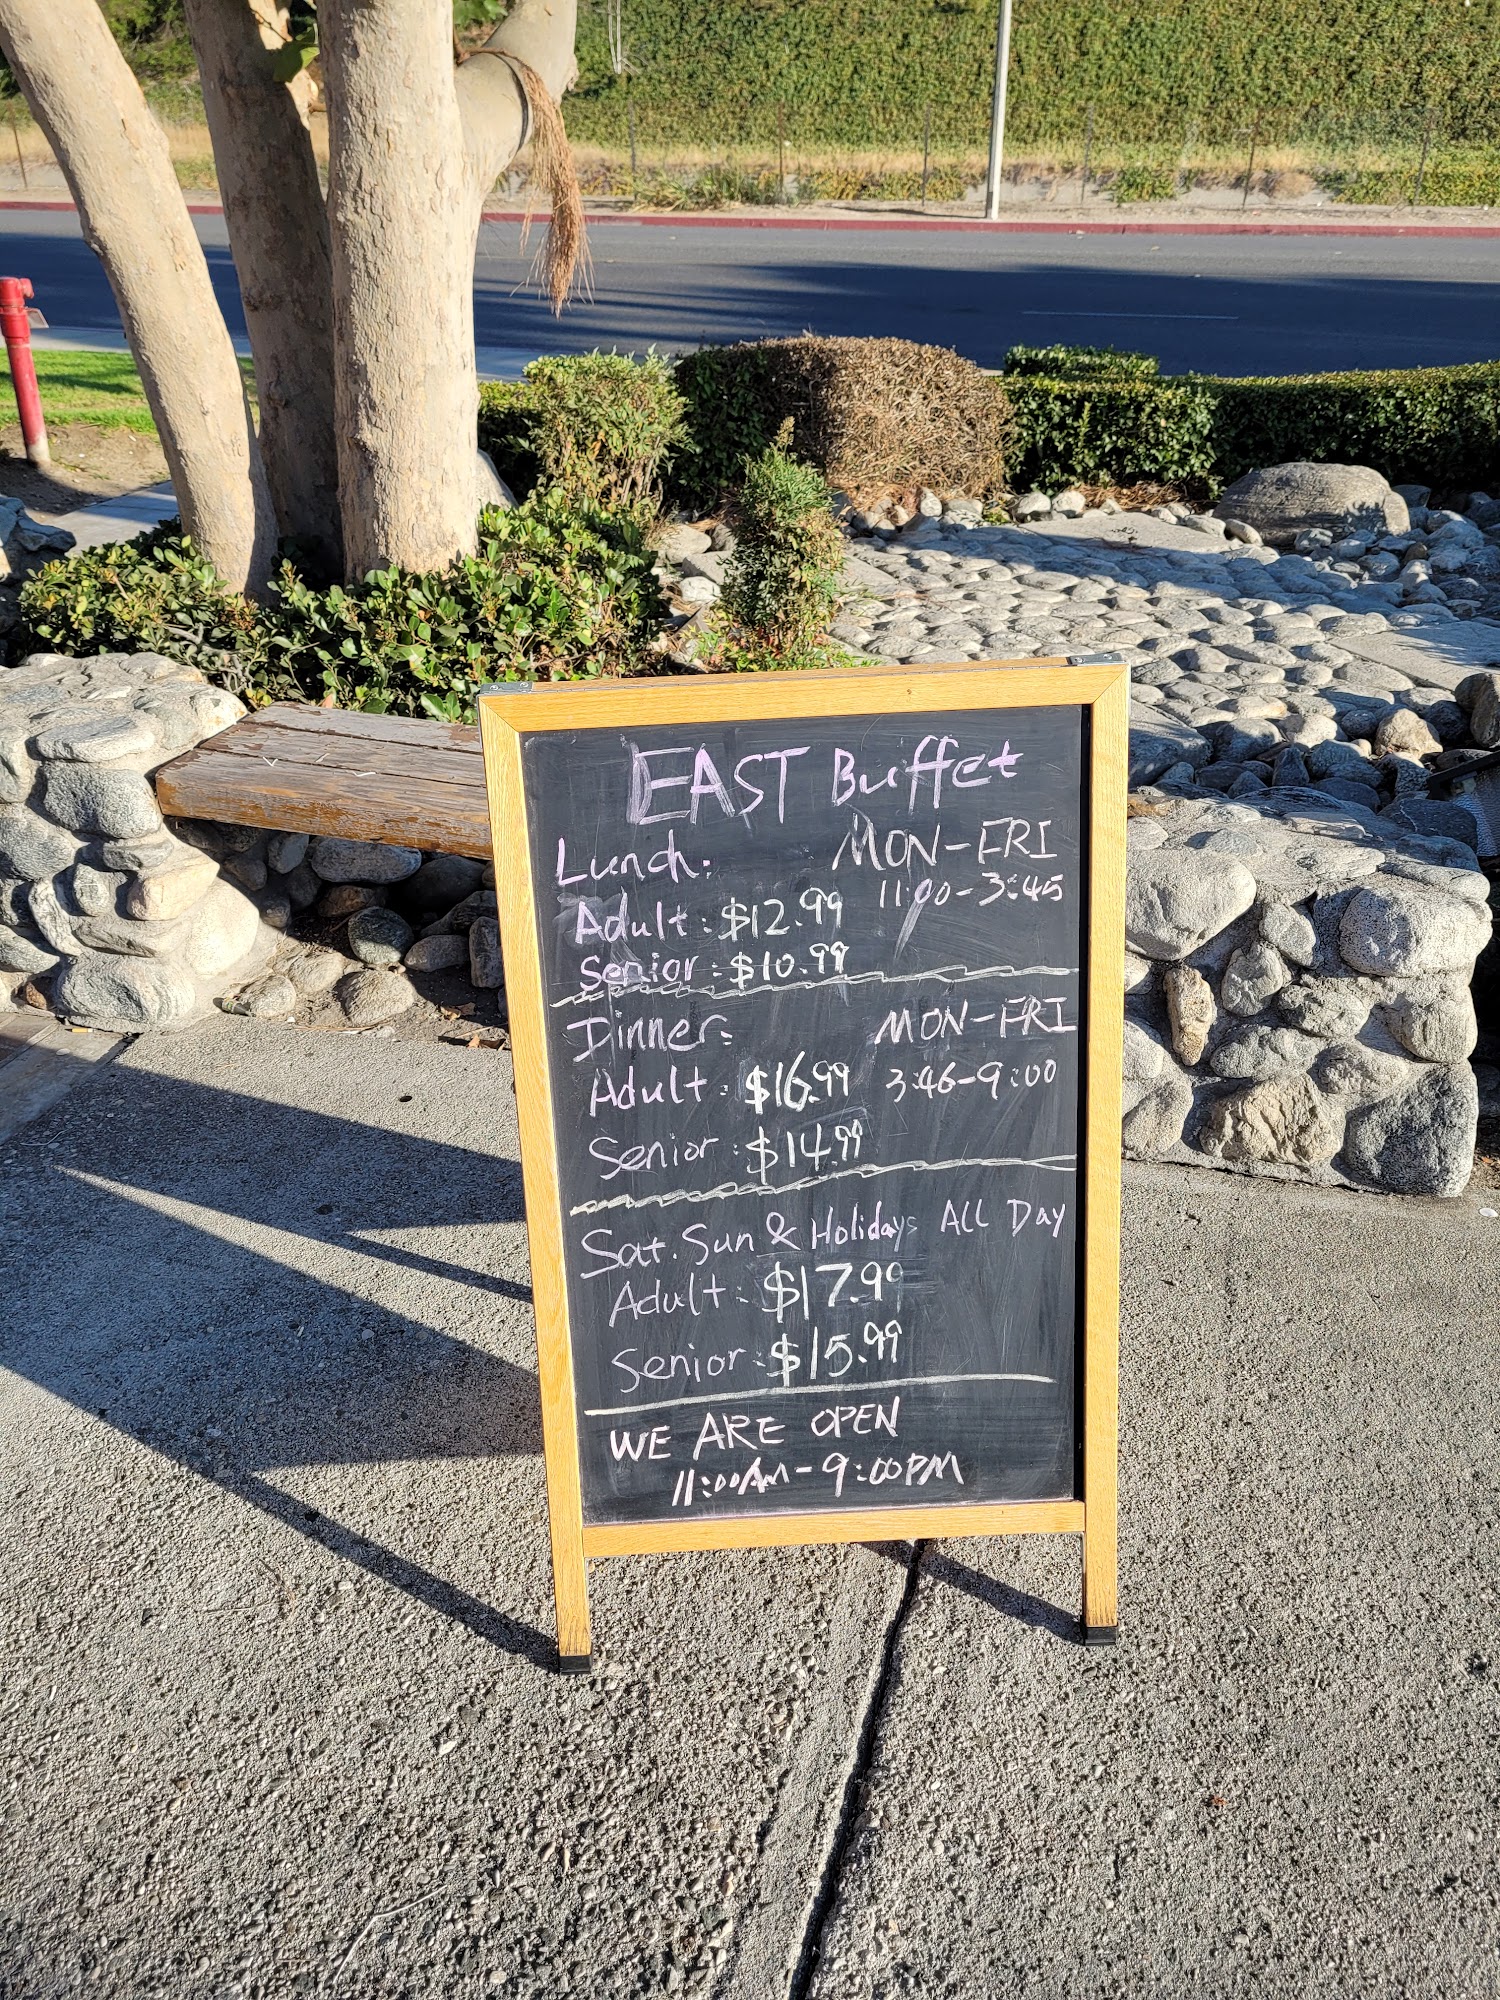 EAST Buffet
Lunch: MON-FRI
Adult: $12.99 11:00-3:45
Senior: $10.99
Dinner: MON-FRI
Adult: $16.99 3:46-9:00
Senior: $14.99
Sat. Sun & Holidays ALL Day
Adult: $17.99
Senior: $15.99
WE ARE OPEN
11:00AM-9:00PM